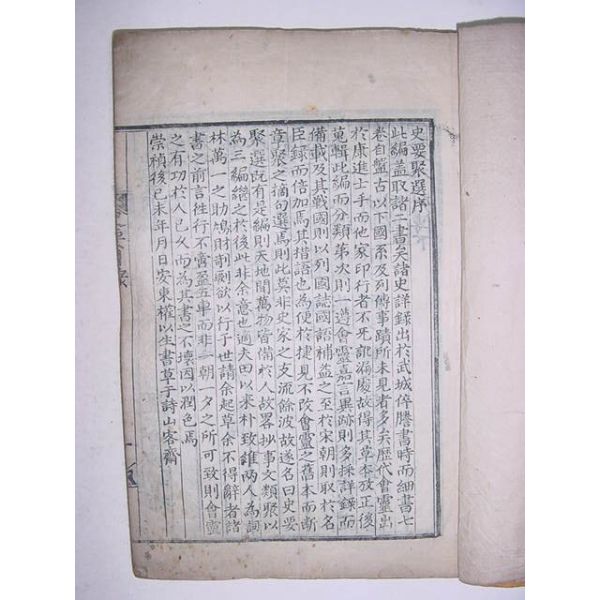 史要聚選序
此編盖取諸二書矣諸史詳錄出於武城倅謄書時而細書七
卷自盤古以下國系及列傳事蹟所未見者多矣歷代會靈出
於康進士手而他家印行者不死訛漏處故得其草本攷正後
蒐輯此編而分類第次則一遵會靈嘉言異跡則多採詳錄而
備載及其戰國則以列國誌國語補益之至於宋朝則取於名
臣錄而倍加焉其措語也為便於捷見不改會靈之舊本而斷
章聚之摘句選焉則此莫非史家之支流餘波故遂名曰史要
聚選旣有是編則天地間萬物皆備於人故畧抄事文類聚以
為三編繼之於後此非余意也適夫田以采朴致維兩人為詞
林萬一之助鳩財剞劂欲以行于世請余起草余不得辭者諸
書之前言徃行不啻盈五車而非一朝一夕之所可致則會靈
之有功於人已久而為其書之不壞因以潤色焉
崇禎後己未年月日安東權以生書草于詩山客齋